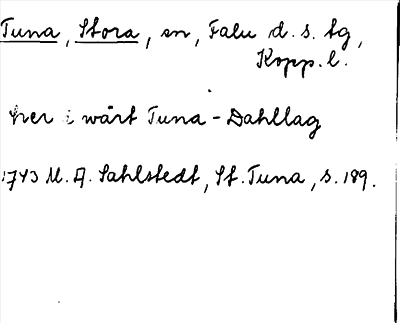 Tuna, Stora, sn, Falu d. s. tg,
Kopp. l.
her i wårt Tuna-Dahllag
1743 M. A. Sahlstedt, St. Tuna, s. 189.